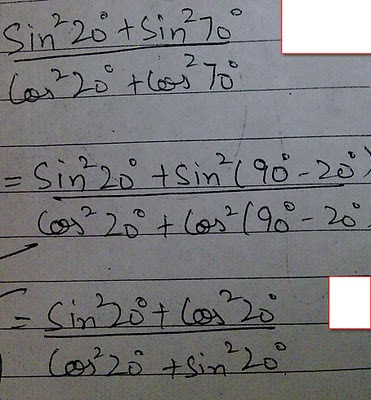 Sin²20° + Sin²70°
Cos²20° + Cos²70°
= Sin²20° + Sin²(90° - 20°)
Cos²20° + Cos²(90° - 20°
= Sin²20° + Cos²20°
Cos²20° + Sin²20°